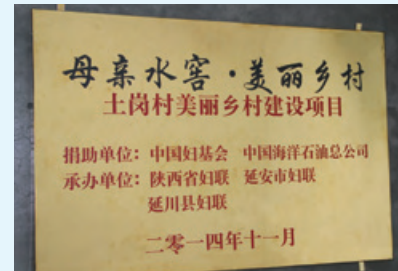 母亲水窖·美丽乡村
土岗村美丽乡村建设项目
捐助单位：中国妇基会 中国海洋石油总公司
承办单位：陕西省妇联 延安市妇联
延川县妇联
二零一四年十一月